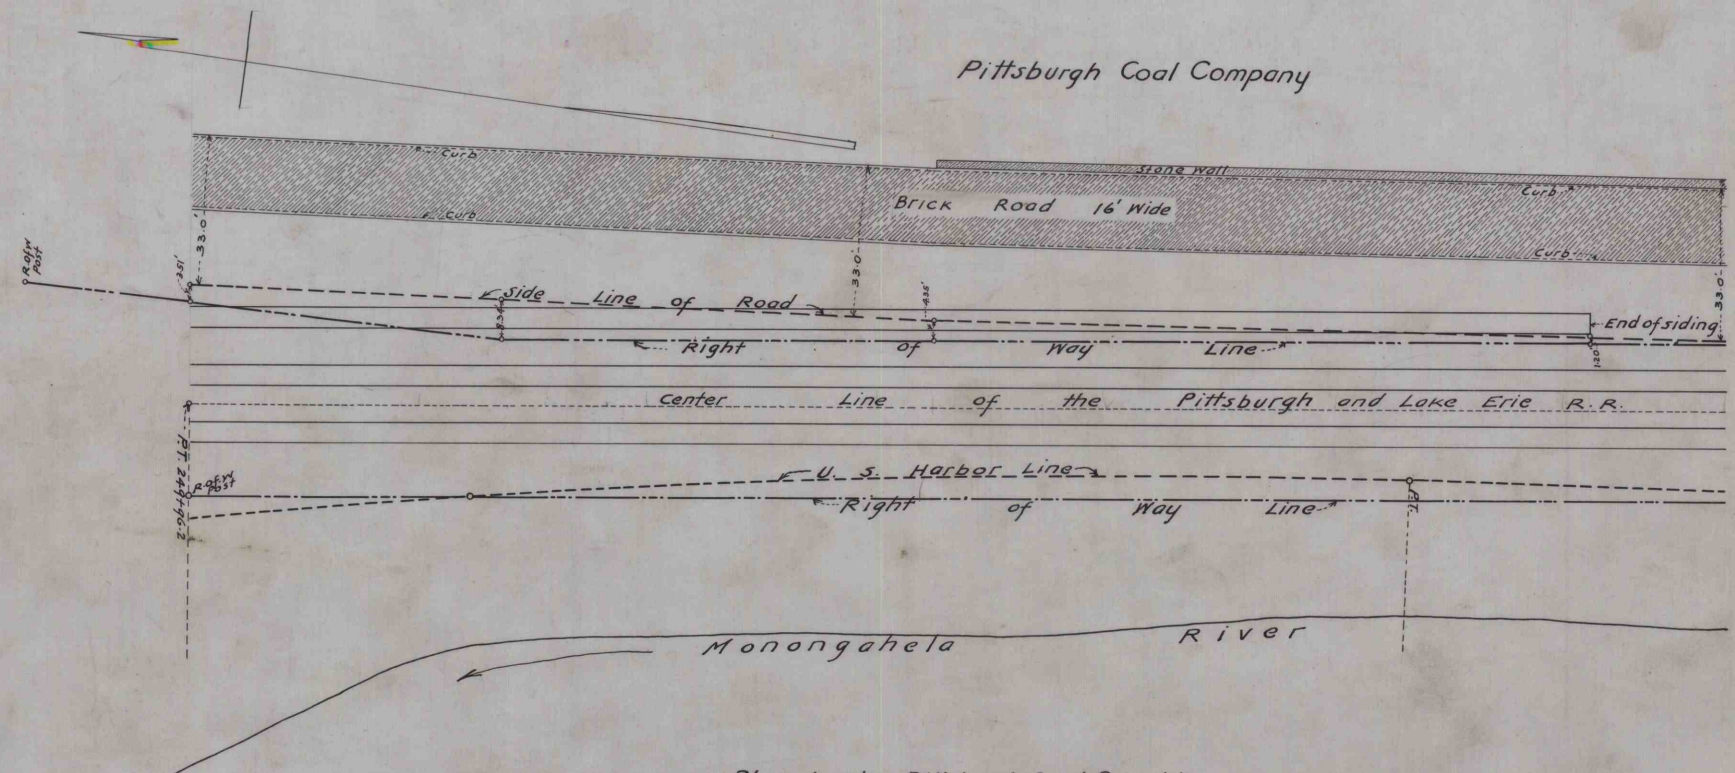 Pittsburgh Coal Company
Curb
Stone Wall
Curb
Brick Road 16' Wide
Curb
Curb
33.0'
33.0'
33.0'
R. of W. Post
3.51'
Side Line of Road
8.34'
4.35'
End of siding
1.20'
Right of Way Line
Center Line of the Pittsburgh and Lake Erie R.R.
P.T. 249+96.2
R. of W. Post
U. S. Harbor Line
P.T.
Right of Way Line
Monongahela River